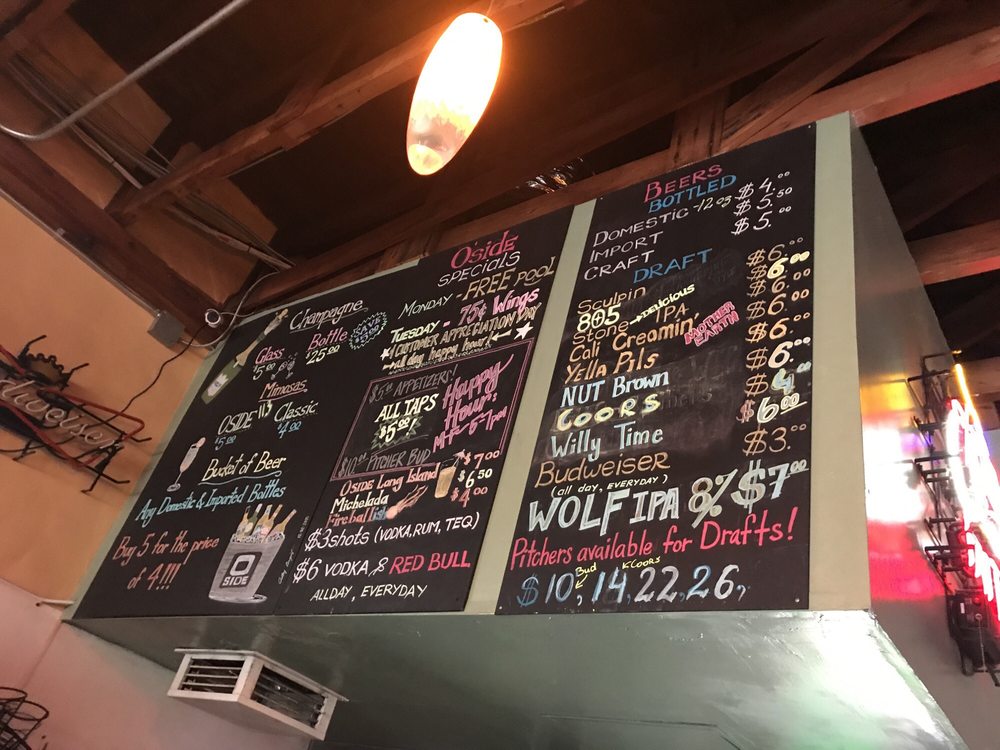 Champagne
Glass
$5.00
Bottle
$25.00
SAVE
Mimosas
OSIDE
$5.00
Classic
4.00
Bucket of Beer
Any Domestic & Imported Bottles
Buy 5 for the price
of 4!!!
O
SIDE
O'side
SPECIALS
MONDAY - FREE POOL
TUESDAY - 75¢ Wings
CUSTOMER APPRECIATION DAY
all day happy hour
$5.00 APPETIZERS!
ALL TAPS
$5.00!
Happy
Hour:
M-F 5-7pm
$10.00 PITCHER BUD
OSIDE Long Island $7.00
Michelada $6.50
Fireball $4.00
$3 shots (VODKA, RUM, TEQ)
$6 VODKA & RED BULL
ALLDAY, EVERYDAY
BEERS
BOTTLED
DOMESTIC -12oz $4.00
IMPORT $5.50
CRAFT $5.00
DRAFT
Sculpin $6.00
805 DELICIOUS $6.00
Stone IPA $6.00
Cali Creamin' MOTHER EARTH $6.00
Yella Pils $6.00
NUT Brown $6.00
COORS
Willy Time $6.00
Budweiser $3.00
(all day, EVERYDAY)
WOLF IPA 8% $7.00
Pitchers available for Drafts!
Bud Coors
$10, 14, 22, 26,